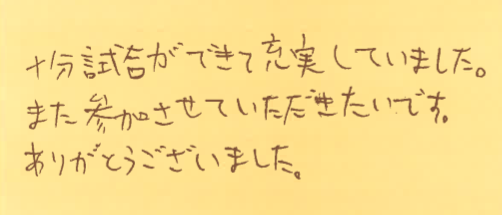 十分試合ができて充実していました。
また参加させていただきたいです。
ありがとうございました。